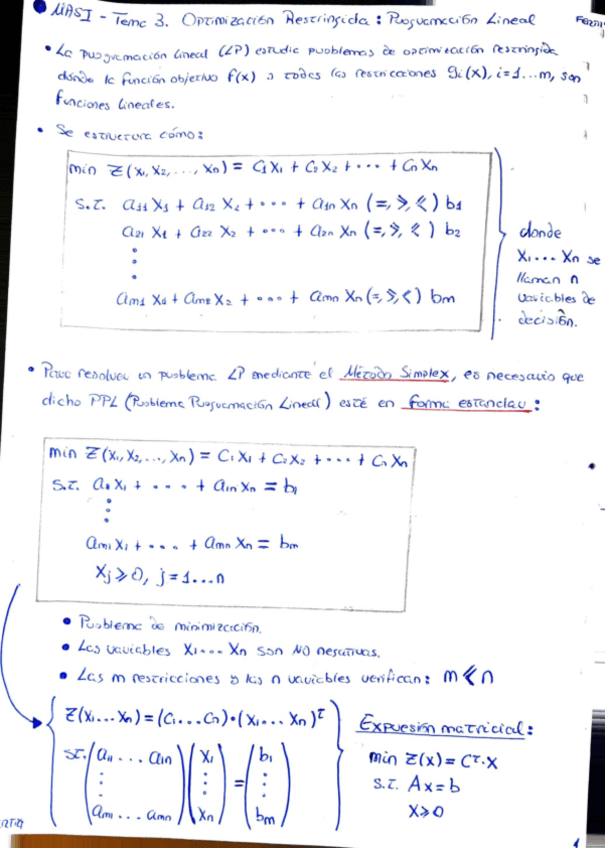 MASI - Tema 3. Optimización Restringida: Programación Lineal
• La programación lineal (LP) estudia problemas de optimización restringida
donde la función objetivo f(x) y todas las restricciones gi(x), i=1...m, son
funciones lineales.
• Se estructura cómo:
min Z(x1, x2, ..., xn) = C1x1 + C2x2 + ... + Cnxn
s.t. a11 x1 + a12 x2 + ... + a1n xn (=, ≥, ≤) b1
a21 x1 + a22 x2 + ... + a2n xn (=, ≥, ≤) b2
⋮
am1 x1 + am2 x2 + ... + amn xn (=, ≥, ≤) bm
donde
x1...xn se
llaman n
variables de
decisión.
• Para resolver un problema LP mediante el Método Simplex, es necesario que
dicho PPL (Problema Programación Lineal) esté en forma estandar:
min Z(x1, x2, ..., xn) = C1x1 + C2x2 + ... + Cnxn
s.t. a11 x1 + ... + a1n xn = b1
⋮
am1 x1 + ... + amn xn = bm
xj ≥ 0, j = 1...n
• Problema de minimización.
• Las variables x1...xn son NO negativas.
• Las m restricciones y las n variables verifican: m ≤ n
Z(x1...xn) = (C1...Cn)·(x1...xn)^t
s.t. (a11 ... a1n) (x1) = (b1)
⋮ ⋮ ⋮
(am1 ... amn) (xn) (bm)
Expresión matricial:
min Z(x) = C^t·x
s.t. Ax = b
x ≥ 0